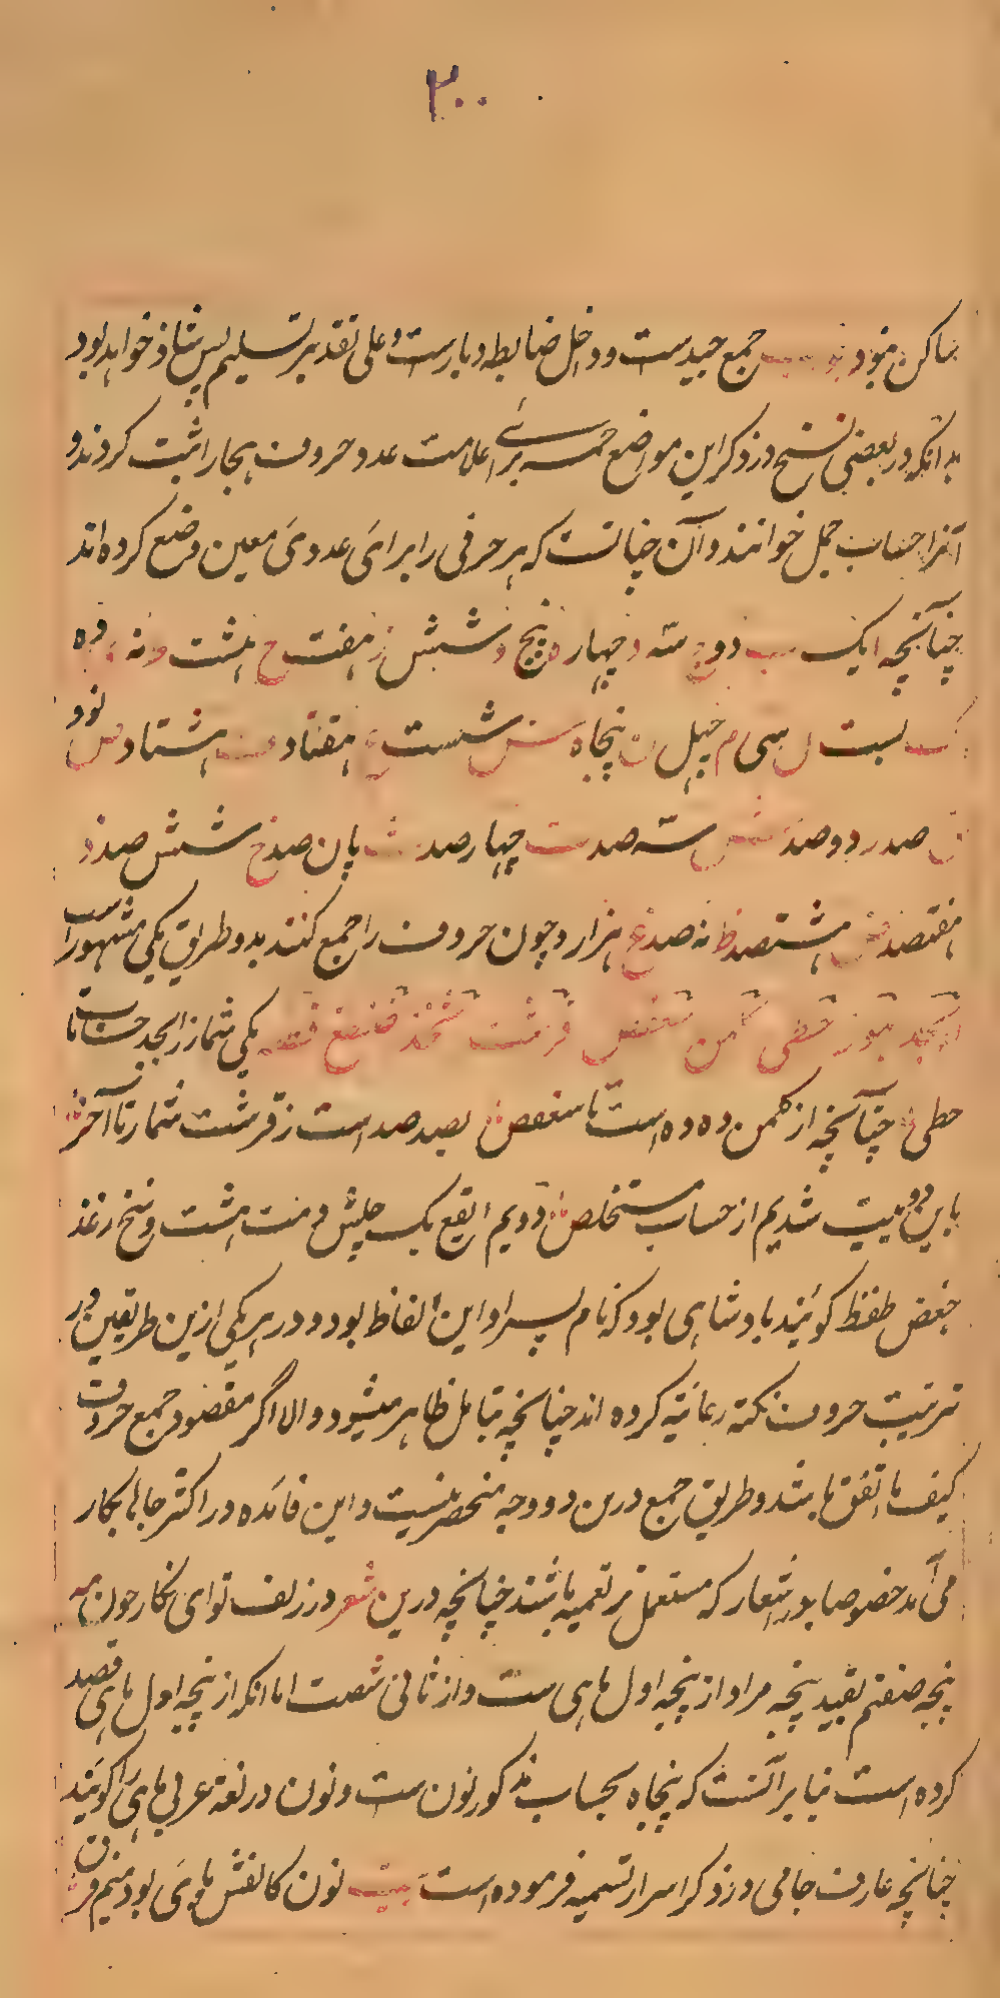 ۲۰۰
ساکن نبود جمع جیدست و داخل ضابطه دیارست و علی تقدیر تسلیم پس شاذ خواهد بود
بدانکه در بعضی نسخ در ذکر این موضع خمسه برای علامت عدد حروف هجا را ثبت کردند و
آنرا حساب جمل خوانند و آن چنانست که هر حرفی را برای عددی معین وضع کرده اند
چنانچه ا یک ب دو ج سه د چهار ه پنج و شش ز هفت ح هشت ط نه ی ده
ک بست ل سی م چهل ن پنجاه س شست ع هفتاد ف هشتاد ص نود
ق صد ر دو صد ش سه صد ت چهار صد ث پان صد خ شش صد ذ
هفتصد ض هشتصد ظ نه صد غ هزار و چون حروف را جمع کنند بدو طریق یکی مشهور است
ابجد هوز حطی کلمن سعفص قرشت ثخذ ضظغ یکی شمار ز ابجد حساب تا
حطی چنانچه از کلمن ده ده است تا سعفص بصد صد است ز قرشت شمار تا آخر
باین دو بیت شدیم از حساب مستخلص دویم ایقغ بکر جلش دمت هنث وسخ زعذ
حفض طصظ گویند بادشاهی بود که نام پسر او این الفاظ بود و در هر یکی ازین طریقین در
ترتیب حروف نکته رعایته کرده اند چنانچه بتامل ظاهر میشود والا اگر مقصود جمع حروف
کیف ما اتفق باشد و طریق جمع درین دو وجه منحصر نیست و این فائده در اکثر جاها بکار
می آید خصوصا در اشعار که مستعمل بر تعمیه باشند چنانچه درین شعر در زلف تو ای نگار چون
پنجه صنفتم بقید پنجه مراد از پنجه اول ماهی ست و از ثانی شصت اما آنکه از پنجه اول ماهی قصد
کرده است بنا بر آنست که پنجاه بحساب مذکور نون ست و نون در لغة عربی ماهی را گویند
چنانچه عارف جامی در ذکر اسرار تسمیه فرموده است بیت نون کالفش ماهی بود منیم فرق